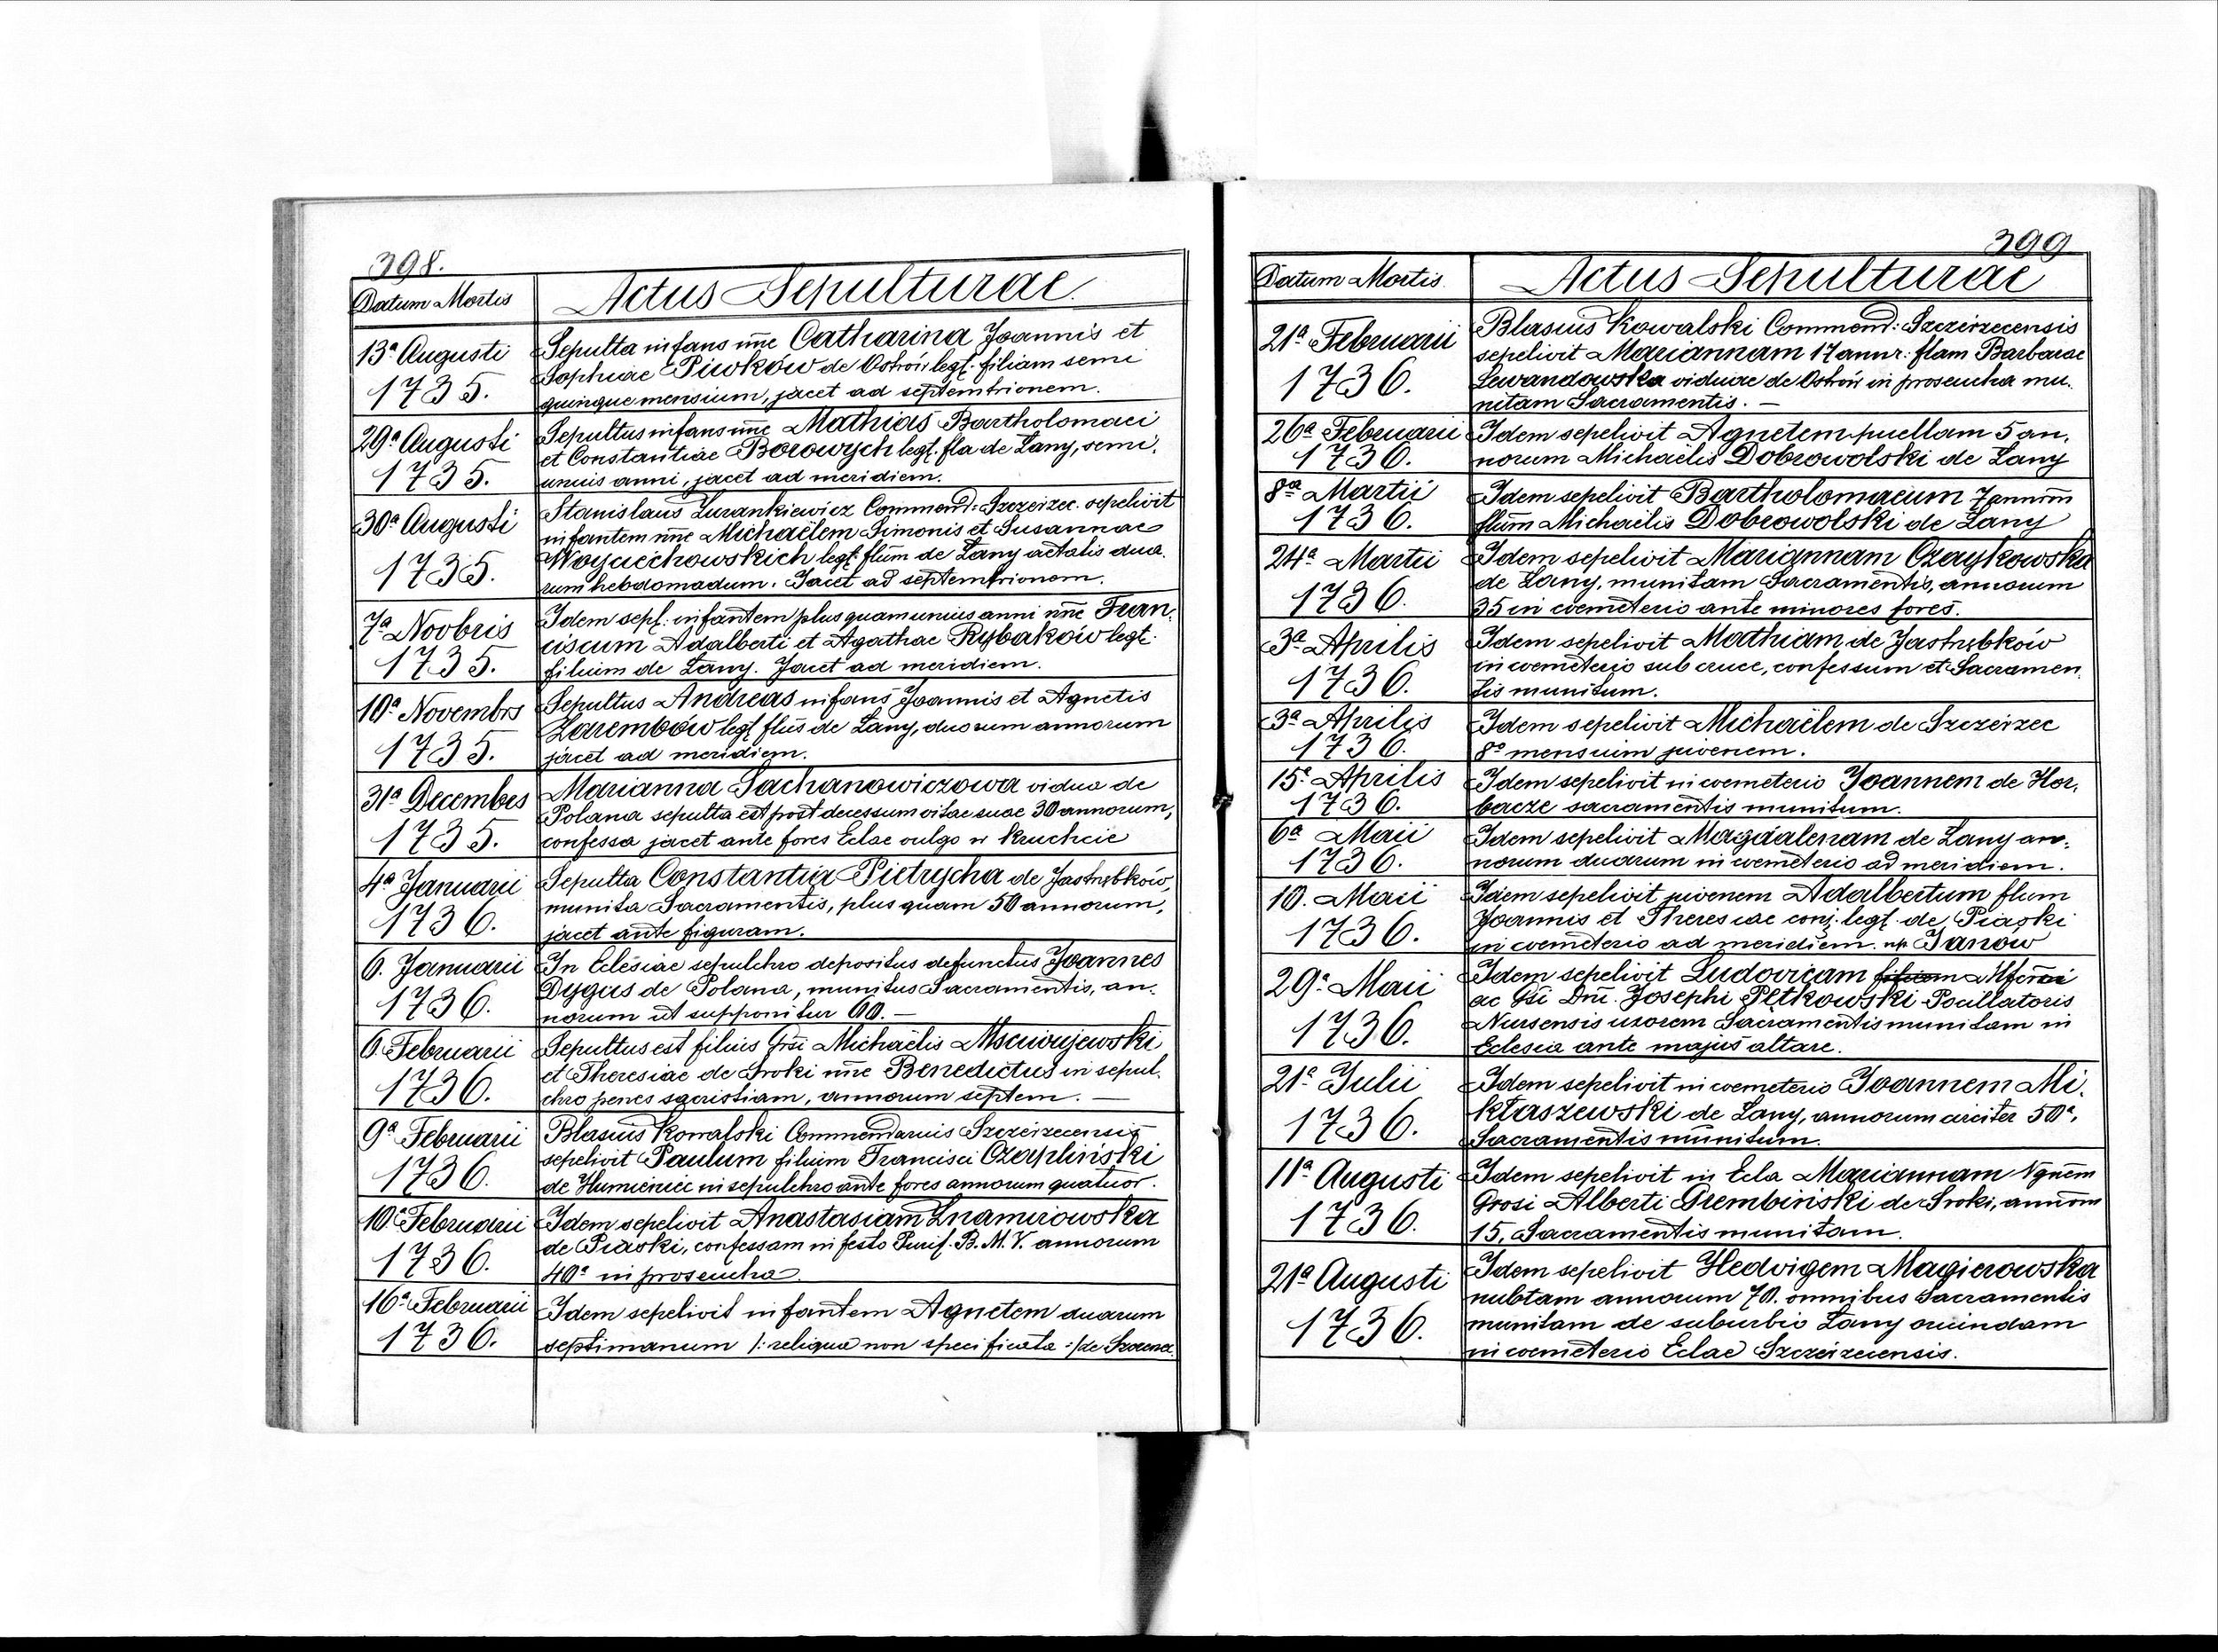 398.
Datum Mortis
Actus Sepulturae.
13ª Augusti
1735.
Sepulta infans nñe Catharina Joannis et
Sophiae Piwków de Ostrów legt. filiam semi
quinque mensium, jacet ad septemtrionem.
29ª Augusti
1735.
Sepultus infans nñe Mathias Bartholomaei
et Constantiae Borowych legt. fla de Lany, semi
unius anni, jacet ad meridiem.
30ª Augusti
1735.
Stanislaus Żurankiewicz Commend: Szczeirzec. sepelivit
infantem nñe Michaëlem Simonis et Susannae
Woyciechowskich legt. flũm de Lany aetatis dua.
rum hebdomadum. Jacet ad septemtrionem.
7ª Novbris
1735.
Idem sept. infantem plus quam unius anni nñe Fran.
ciscum Adalberti et Agathae Rybaków legt.
filium de Lany. Jacet ad meridiem.
10ª Novembrs
1735.
Sepultus Andreas infans Joannis et Agnetis
Zarembów legt flũs de Lany, duorum annorum
jacet ad meridiem.
31ª Decembrs
1735.
Marianna Sachanowiczowa vidua de
Polana sepulta est post decessum vitae suae 30 annorum,
confessa jacet ante fores Eclae vulgo w kruchcie
4ª Januarii
1736.
Sepulta Constantia Pietrycha de Jastrębków,
munita Sacramentis, plus quam 50 annorum,
jacet ante figuram.
6. Januarii
1736.
In Eclesiae sepulchro depositus defunctus Joannes
Dygus de Polana, munitus Sacramentis, an.
norum ut supponitur 60. —
6. Februarii
1736.
Sepultus est filius Grsi Michaëlis Msciwujewski
et Theresiae de Sroki nñe Benedictus in sepul.
chro penes sacristiam, annorum septem. —
9ª Februarii
1736.
Blasius Kowalski Commendarius Szczeirzecensis
sepelivit Paulum filium Francisci Czaplinski
de Humieniec in sepulchro ante fores annorum quatuor.
10ª Februarii
1736.
Idem sepelivit Anastasiam Znamirowska
de Piaski, confessam in festo Purif. B. M. V. annorum
40ª in proseucha.
16ª Februarii
1736.
Idem sepelivit infantem Agnetem duarum
septimanum /: reliqua non specificata :/ de
399
Datum Mortis.
Actus Sepulturae
21ª Februarii
1736.
Blasius Kowalski Commend: Szczeirzecensis
sepelivit Mariannam 17 annr. flam Barbarae
Lewandowska viduae de Ostrów in proseucha mu.
nitam Sacramentis. —
26ª Februarii
1736.
Idem sepelivit Agnetem puellam 5 an.
norum Michaëlis Dobrowolski de Lany
8ª Martii
1736.
Idem sepelivit Bartholomaeum 7 annrm
flũm Michaëlis Dobrowolski de Lany
24ª Martii
1736.
Idem sepelivit Mariannam Czaykowska
de Lany, munitam Sacramentis, annorum
35 in coemeterio ante minores fores.
3ª Aprilis
1736.
Idem sepelivit Mathiam de Jastrębków
in coemeterio sub cruce, confessum et Sacramen.
tis munitum.
3ª Aprilis
1736.
Idem sepelivit Michaëlem de Szczeirzec
8º mensium juvenem.
15ª Aprilis
1736.
Idem sepelivit in coemeterio Joannem de Hor.
bacze sacramentis munitum.
6ª Maii
1736.
Idem sepelivit Magdalenam de Lany an.
norum duarum in coemeterio ad meridiem.
10. Maii
1736.
Idem sepelivit juvenem Adalbertum flum
Joannis et Theresiae conj. legt. de Piaski
in coemeterio ad meridiem. np. Janow
29ª Maii
1736.
Idem sepelivit Ludovicam filiam
ac Grsi Dni Josephi Petkowski Pocillatoris
Nursensis uxorem Sacramentis munitam in
Eclesia ante majus altare.
21ª Julii
1736.
Idem sepelivit in coemeterio Joannem Mi.
kłaszewski de Lany, annorum circiter 50ª,
Sacramentis munitum.
11ª Augusti
1736.
Idem sepelivit in Ecla Mariannam Vgnem
Grosi Alberti Grembinski de Sroki, annorm
15, Sacramentis munitam.
21ª Augusti
1736.
Idem sepelivit Hedvigem Magierowska
nubtam annorum 70. omnibus Sacramentis
munitam de suburbio Lany oriundam
in coemeterio Eclae Szczeirzecensis.